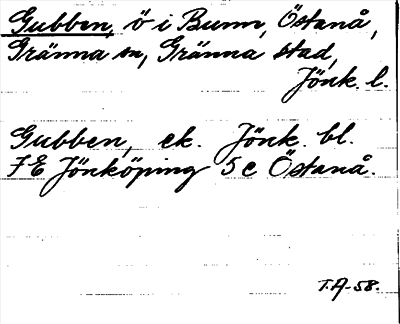 Gubben, ö i Bunn, Östanå,
Gränna sn, Gränna stad,
Jönk. l.
Gubben, ek. Jönk. bl.
7 E Jönköping 5 c Östanå.
T.A-58.